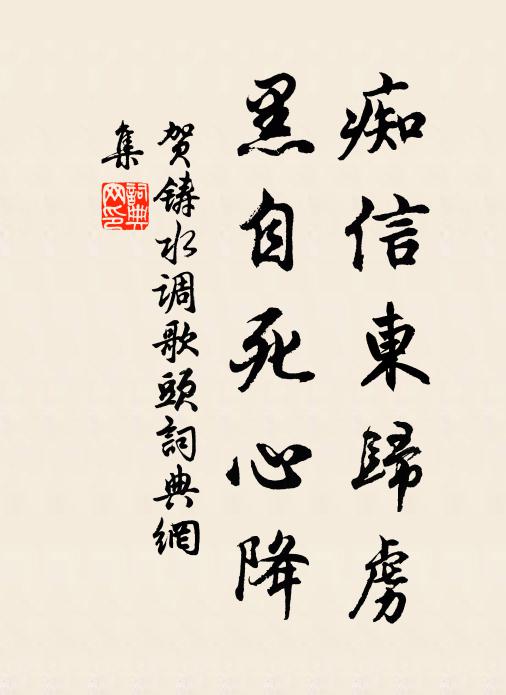 痴信東歸虏
黑自死心降
贺鑄水调歌頭詞典網
集
詞典
网印